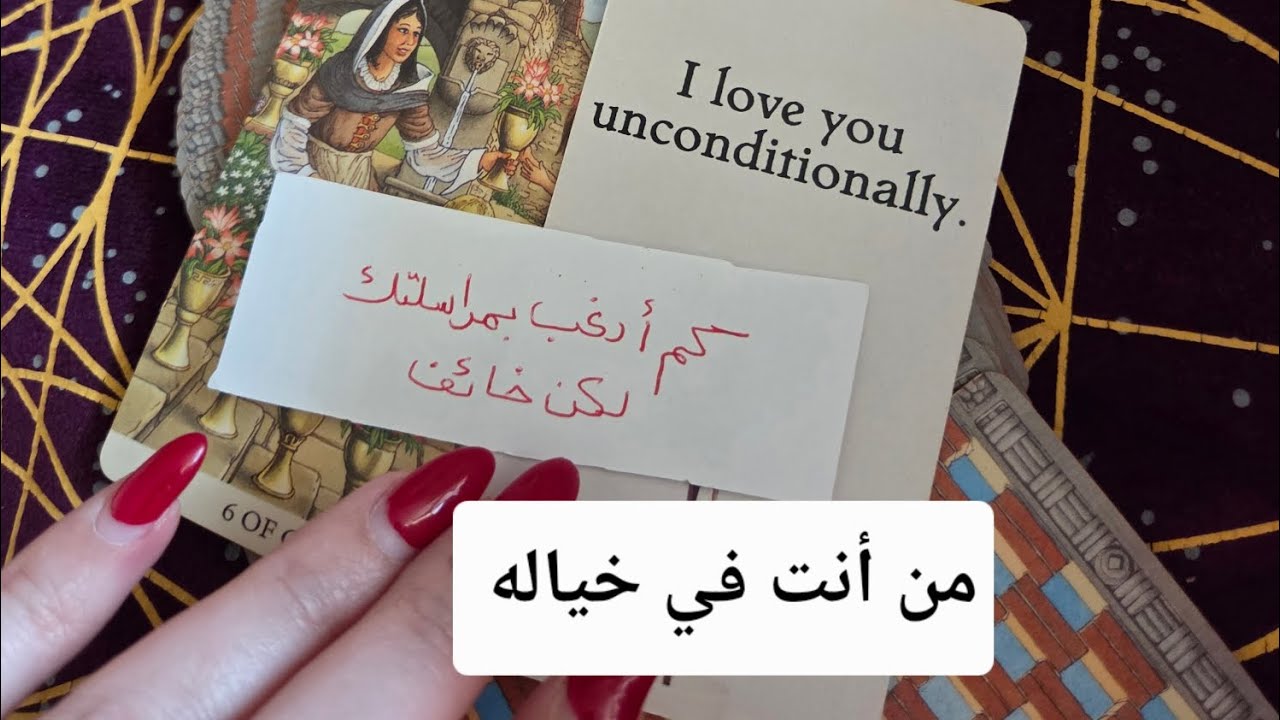 I love you
unconditionally.
كم أرغب بمراسلتك
لكن خائف
6 OF
من أنت في خياله